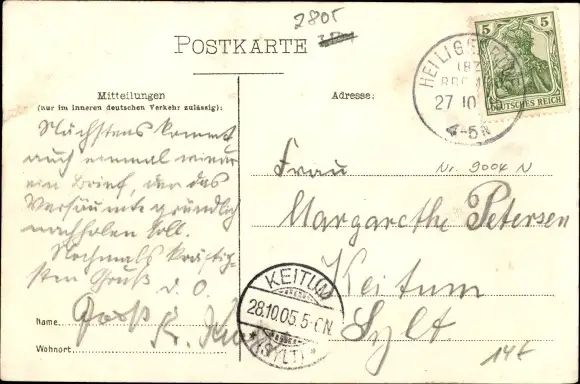 2805
POSTKARTE
Mitteilungen
(nur im inneren deutschen Verkehr zulässig):
Adresse:
5 5
DEUTSCHES REICH
27 10
4-5N
Nächstens kommt
auch einmal wieder
ein Brief, der das
Versäumte gründlich
nachholen soll.
Nochmals kräftig-
sten Gruß
d. O.
Name
Wohnort
Frau
Nr. 9004 N
Margarethe Petersen
Keitum
Sylt.
KEITUM
28.10.05. 5-6N.
*(SYLT)*
14t